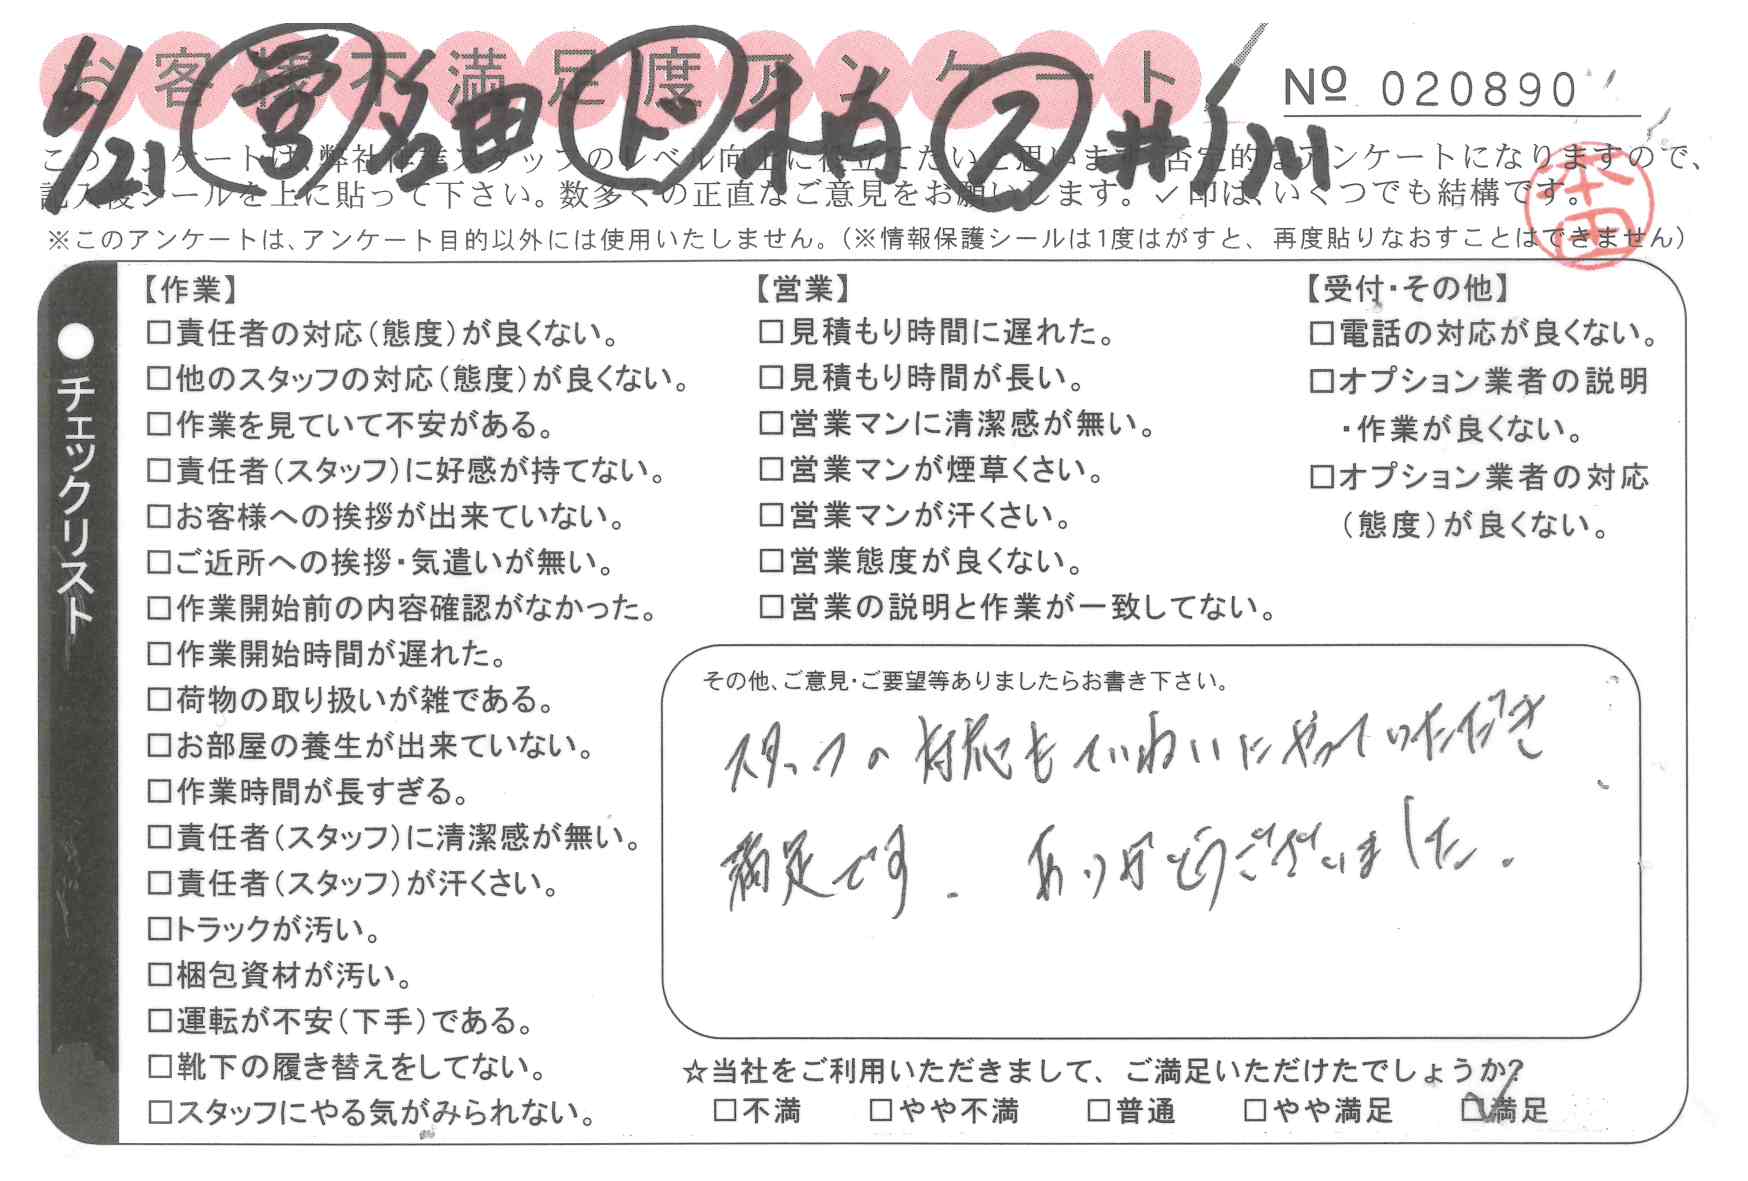 お客様不満足度アンケート
№ 020890
6/21 営 ド ス 井川
このアンケートは、弊社作業スタッフのレベル向上に役立てたいと思います。否定的なアンケートになりますので、
記入後シールを上に貼って下さい。数多くの正直なご意見をお願いします。✓印は、いくつでも結構です。
本田
※このアンケートは、アンケート目的以外には使用いたしません。(※情報保護シールは1度はがすと、再度貼りなおすことはできません)
●チェックリスト
【作業】
□責任者の対応(態度)が良くない。
□他のスタッフの対応(態度)が良くない。
□作業を見ていて不安がある。
□責任者(スタッフ)に好感が持てない。
□お客様への挨拶が出来ていない。
□ご近所への挨拶・気遣いが無い。
□作業開始前の内容確認がなかった。
□作業開始時間が遅れた。
□荷物の取り扱いが雑である。
□お部屋の養生が出来ていない。
□作業時間が長すぎる。
□責任者(スタッフ)に清潔感が無い。
□責任者(スタッフ)が汗くさい。
□トラックが汚い。
□梱包資材が汚い。
□運転が不安(下手)である。
□靴下の履き替えをしてない。
□スタッフにやる気がみられない。
【営業】
□見積もり時間に遅れた。
□見積もり時間が長い。
□営業マンに清潔感が無い。
□営業マンが煙草くさい。
□営業マンが汗くさい。
□営業態度が良くない。
□営業の説明と作業が一致してない。
【受付・その他】
□電話の対応が良くない。
□オプション業者の説明
・作業が良くない。
□オプション業者の対応
(態度)が良くない。
その他、ご意見・ご要望等ありましたらお書き下さい。
スタッフの対応もていねいにやっていただき
満足です. ありがとうございました.
☆当社をご利用いただきまして、ご満足いただけたでしょうか?
□不満 □やや不満 □普通 □やや満足 ☑満足